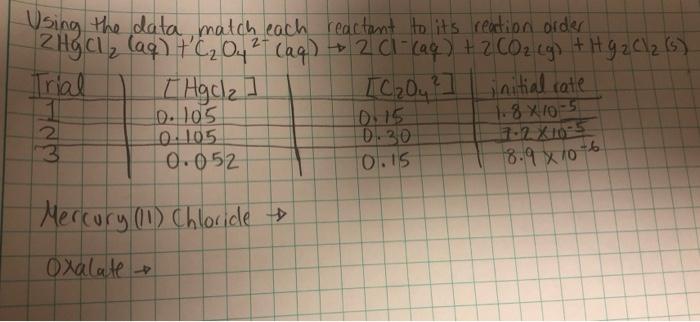 Using the data, match each reactant to its reation order
2HgCl2 (aq) + C2O4 2- (aq) → 2 Cl- (aq) + 2CO2 (g) + Hg2Cl2 (s)
Trial [HgCl2] [C2O4 2] initial rate
1 0.105 0.15 1.8 x 10-5
2 0.105 0.30 7.2 x 10-5
3 0.052 0.15 8.9 x 10-6
Mercury (11) Chloride →
Oxalate →